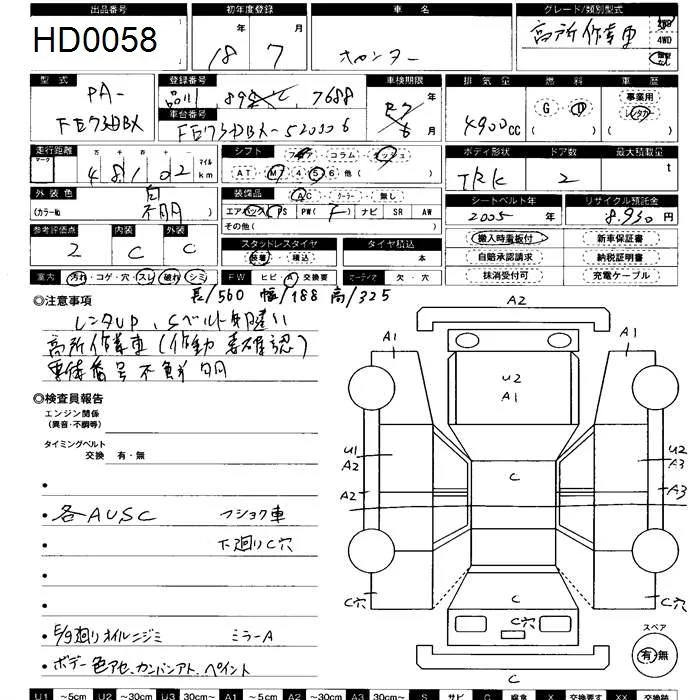 出品番号 初年度登録 車名 グレード/類別型式
HD0058 18年 7月 カンター 高所作業車 4WD
型式 登録番号 車検期限 排気量 燃料 車歴
PA- 品川 7688 R7年 事業用
FE73DBX 車台番号 6月 4900cc G D レンタカー
FE73DBX-520006
走行距離 シフト ボディ形状 ドア数 最大積載量
マーク 481,02 マイル km フロア コラム TRK 2 t
AT M 4 5 6
外装色 装備品 シートベルト年 リサイクル預託金
白 AC クーラー 無し 2005 8,930円
(カラーNo. 不明) エアバック PS PW( F ) ナビ SR AW
参考評価点 内装 外装 その他( ) 搬入時電板付 新車保証書
2 C C スタッドレスタイヤ タイヤ積込 自賠承認請求 納税証明書
装着 積込 本 抹消受付可 充電ケーブル
室大 汚れ・コゲ・穴・スレ・破れ・シミ FW ヒビ・A・交換要 欠・穴
長/560 幅/188 高/325
◎注意事項
レンタUP、Sベルト年違い
高所作業車(作動要確認)
車検番号不鮮明
◎検査員報告
エンジン関係
(異音・不調等)
タイミングベルト
交換 有・無
• 各AUSC フショク車
下廻りC穴
• E/g廻りオイルニジミ ミラーA
• ボデー色アセ、カンバンアト、ペイント
A2
A1 A1
U2
A1
U1 U2
A2 A3
C
A2 A3
C穴 C C穴
C穴
C
スペア
有 無
U1 ~5cm U2 ~30cm U3 30cm~ A1 ~5cm A2 ~30cm A3 30cm~ S サビ C 腐食 X 交換要す XX 交換跡